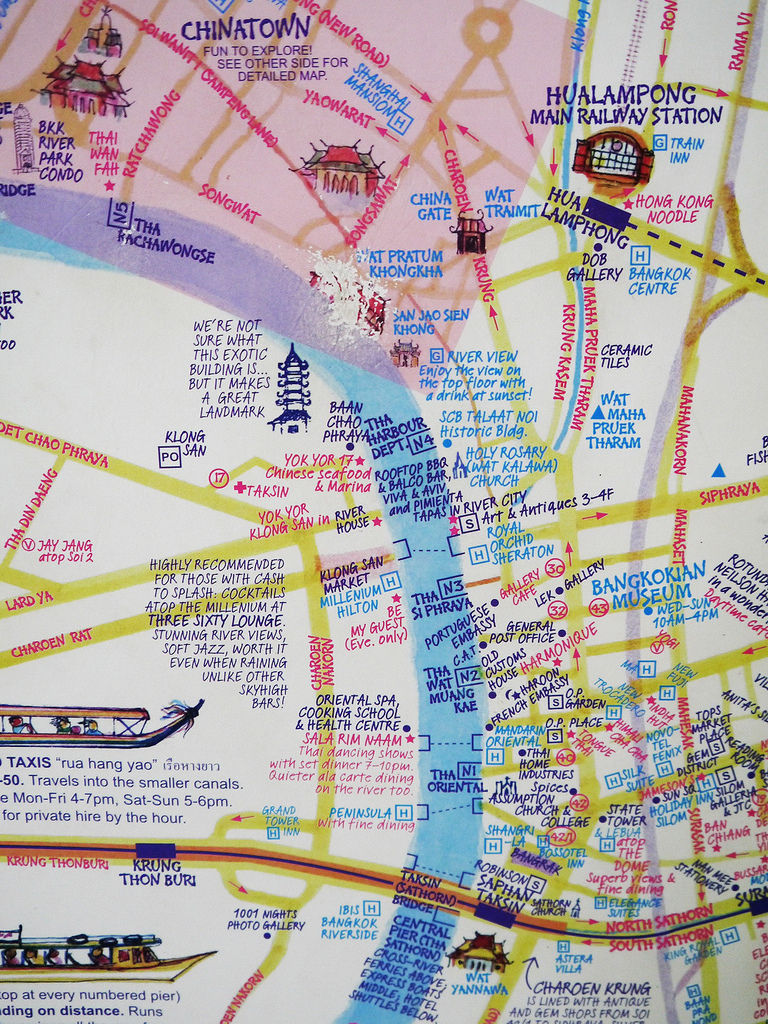 CHINATOWN
FUN TO EXPLORE!
SEE OTHER SIDE FOR
DETAILED MAP.
(NEW ROAD)
SHANGHAI
MANSION H
YAOWARAT
RATCHAWONG
SONGWAT
SONGSAWAT
BKK
RIVER
PARK
CONDO
THAI
WAN
FAH
RIDGE
N5
THA
RACHAWONGSE
CHAROEN
KRUNG
CHINA
GATE
WAT
TRAIMIT
RAMA VI
HUALAMPONG
MAIN RAILWAY STATION
G TRAIN
INN
HUA
LAMPHONG
HONG KONG
NOODLE
DOB
GALLERY
H
BANGKOK
CENTRE
WAT PRATUM
KHONGKHA
SAN JAO SIEN
KHONG
KRUNG KASEM
MAHA PRUEK THARAM
CERAMIC
TILES
WAT
MAHA
PRUEK
THARAM
MAHANAKORN
WE'RE NOT
SURE WHAT
THIS EXOTIC
BUILDING IS...
BUT IT MAKES
A GREAT
LANDMARK
G RIVER VIEW
Enjoy the view on
the top floor with
a drink at sunset!
SCB TALAAT NOI
Historic Bldg.
BAAN
CHAO
PHRAYA
THA
HARBOUR
DEPT. N4
HOLY ROSARY
(WAT KALAWA)
CHURCH
DET CHAO PHRAYA
KLONG
SAN
PO
17
TAKSIN
YOK YOR 17
Chinese seafood
& Marina
ROOFTOP BBQ
& BALCO BAR,
VIVA & AVIV,
and PIMIENTA
TAPAS IN RIVER CITY
S Art & Antiques 3-4F
YOK YOR
KLONG SAN in RIVER
HOUSE
SIPHRAYA
THA DIN DAENG
V JAY JANG
atop Soi 2
LARD YA
CHAROEN RAT
ROYAL
ORCHID
SHERATON
H
HIGHLY RECOMMENDED
FOR THOSE WITH CASH
TO SPLASH: COCKTAILS
ATOP THE MILLENIUM AT
THREE SIXTY LOUNGE.
STUNNING RIVER VIEWS,
SOFT JAZZ, WORTH IT
EVEN WHEN RAINING
UNLIKE OTHER
SKYHIGH
BARS!
KLONG SAN
MARKET
MILLENIUM H
HILTON
BE
MY GUEST
(Eve. only)
CHAROEN
NAKORN
THA N3
SI PHRAYA
GALLERY
CAFE
30
LEK GALLERY
32
43
BANGKOKIAN
MUSEUM
WED-SUN
10AM-4PM
MAHASET
PORTUGUESE
EMBASSY
GENERAL
POST OFFICE
C.A.T.
HARMONIQUE
OLD
CUSTOMS
HOUSE
HAROON
FRENCH EMBASSY
YOGI
THA
WAT N2
MUANG
KAE
O.P.
GARDEN
S
O.P. PLACE
S
MANDARIN
ORIENTAL
H
ORIENTAL SPA,
COOKING SCHOOL
& HEALTH CENTRE
SALA RIM NAAM
Thai dancing shows
with set dinner 7-10pm.
Quieter ala carte dining
on the river too.
THAI
HOME
INDUSTRIES
40
TONGUE
THAI
NEW
TROCADERO
NEW
FUJI
NOVO-
TEL
FENIX
SILK
SUITE
GEMS
DISTRICT
TOPS
MARKET
PLACE
READING
ROOM
THA N1
ORIENTAL
ASSUMPTION
CHURCH &
COLLEGE
Spices
42
TAXIS "rua hang yao" เรือหางยาว
-50. Travels into the smaller canals.
Mon-Fri 4-7pm, Sat-Sun 5-6pm.
for private hire by the hour.
GRAND
TOWER
H INN
PENINSULA H
with fine dining
SHANGRI
-LA
H
42/1
BOSSOTEL
INN
BANGRAK
STATE
TOWER
& LEBUA
atop
THE
DOME
Superb views &
fine dining
HOLIDAY INN
SILOM
SILOM
GALLERIA
& JTC
BAN
CHIANG
NAN MEE
STATIONERY
KRUNG THONBURI
KRUNG
THON BURI
ROBINSON S
SAPHAN
TAKSIN
TAKSIN
(SATHORN)
BRIDGE
SATHORN
CHURCH
H ELEGANCE
SUITES
NORTH SATHORN
SOUTH SATHORN
KING ROYAL
GARDEN
1001 NIGHTS
PHOTO GALLERY
IBIS H
BANGKOK
RIVERSIDE
CENTRAL
PIER (THA
SATHORN)
CROSS-RIVER
FERRIES ABOVE;
EXPRESS BOATS
MIDDLE, HOTEL
SHUTTLES BELOW.
WAT
YANNAWA
H
ASTERA
VILLA
BAAN
PRA
NOND
CHAROEN KRUNG
IS LINED WITH ANTIQUE
AND GEM SHOPS FROM SOI
top at every numbered pier)
nding on distance. Runs